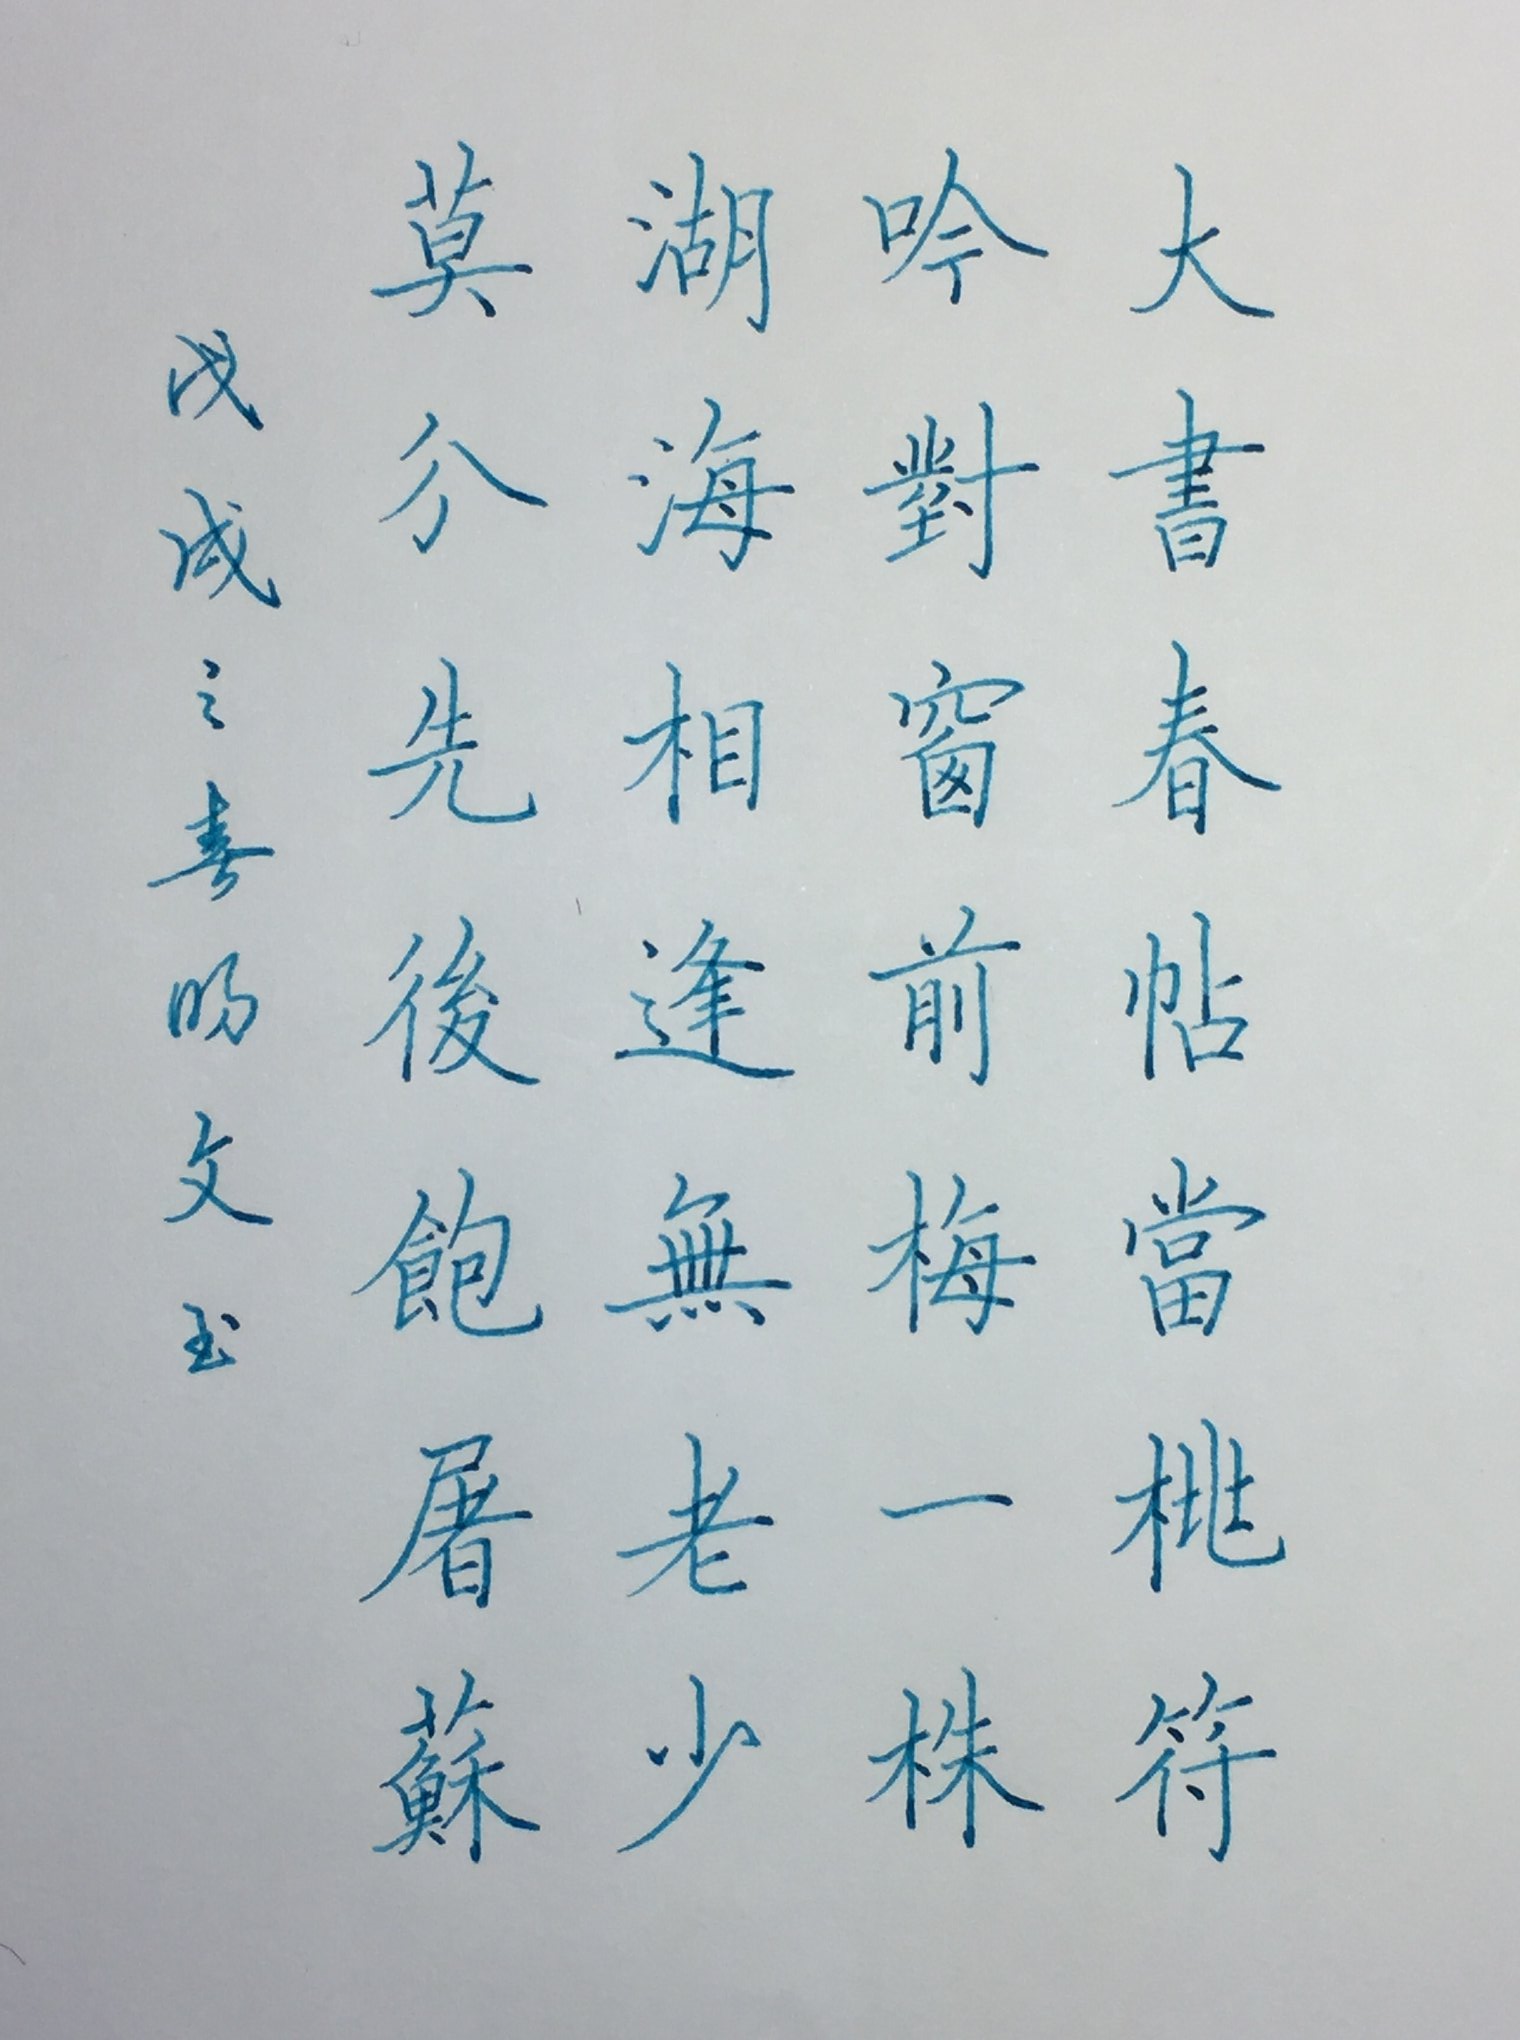 大書春帖當桃符
吟對窗前梅一株
湖海相逢無老少
莫分先後飽屠蘇
戊戌之春明文玉